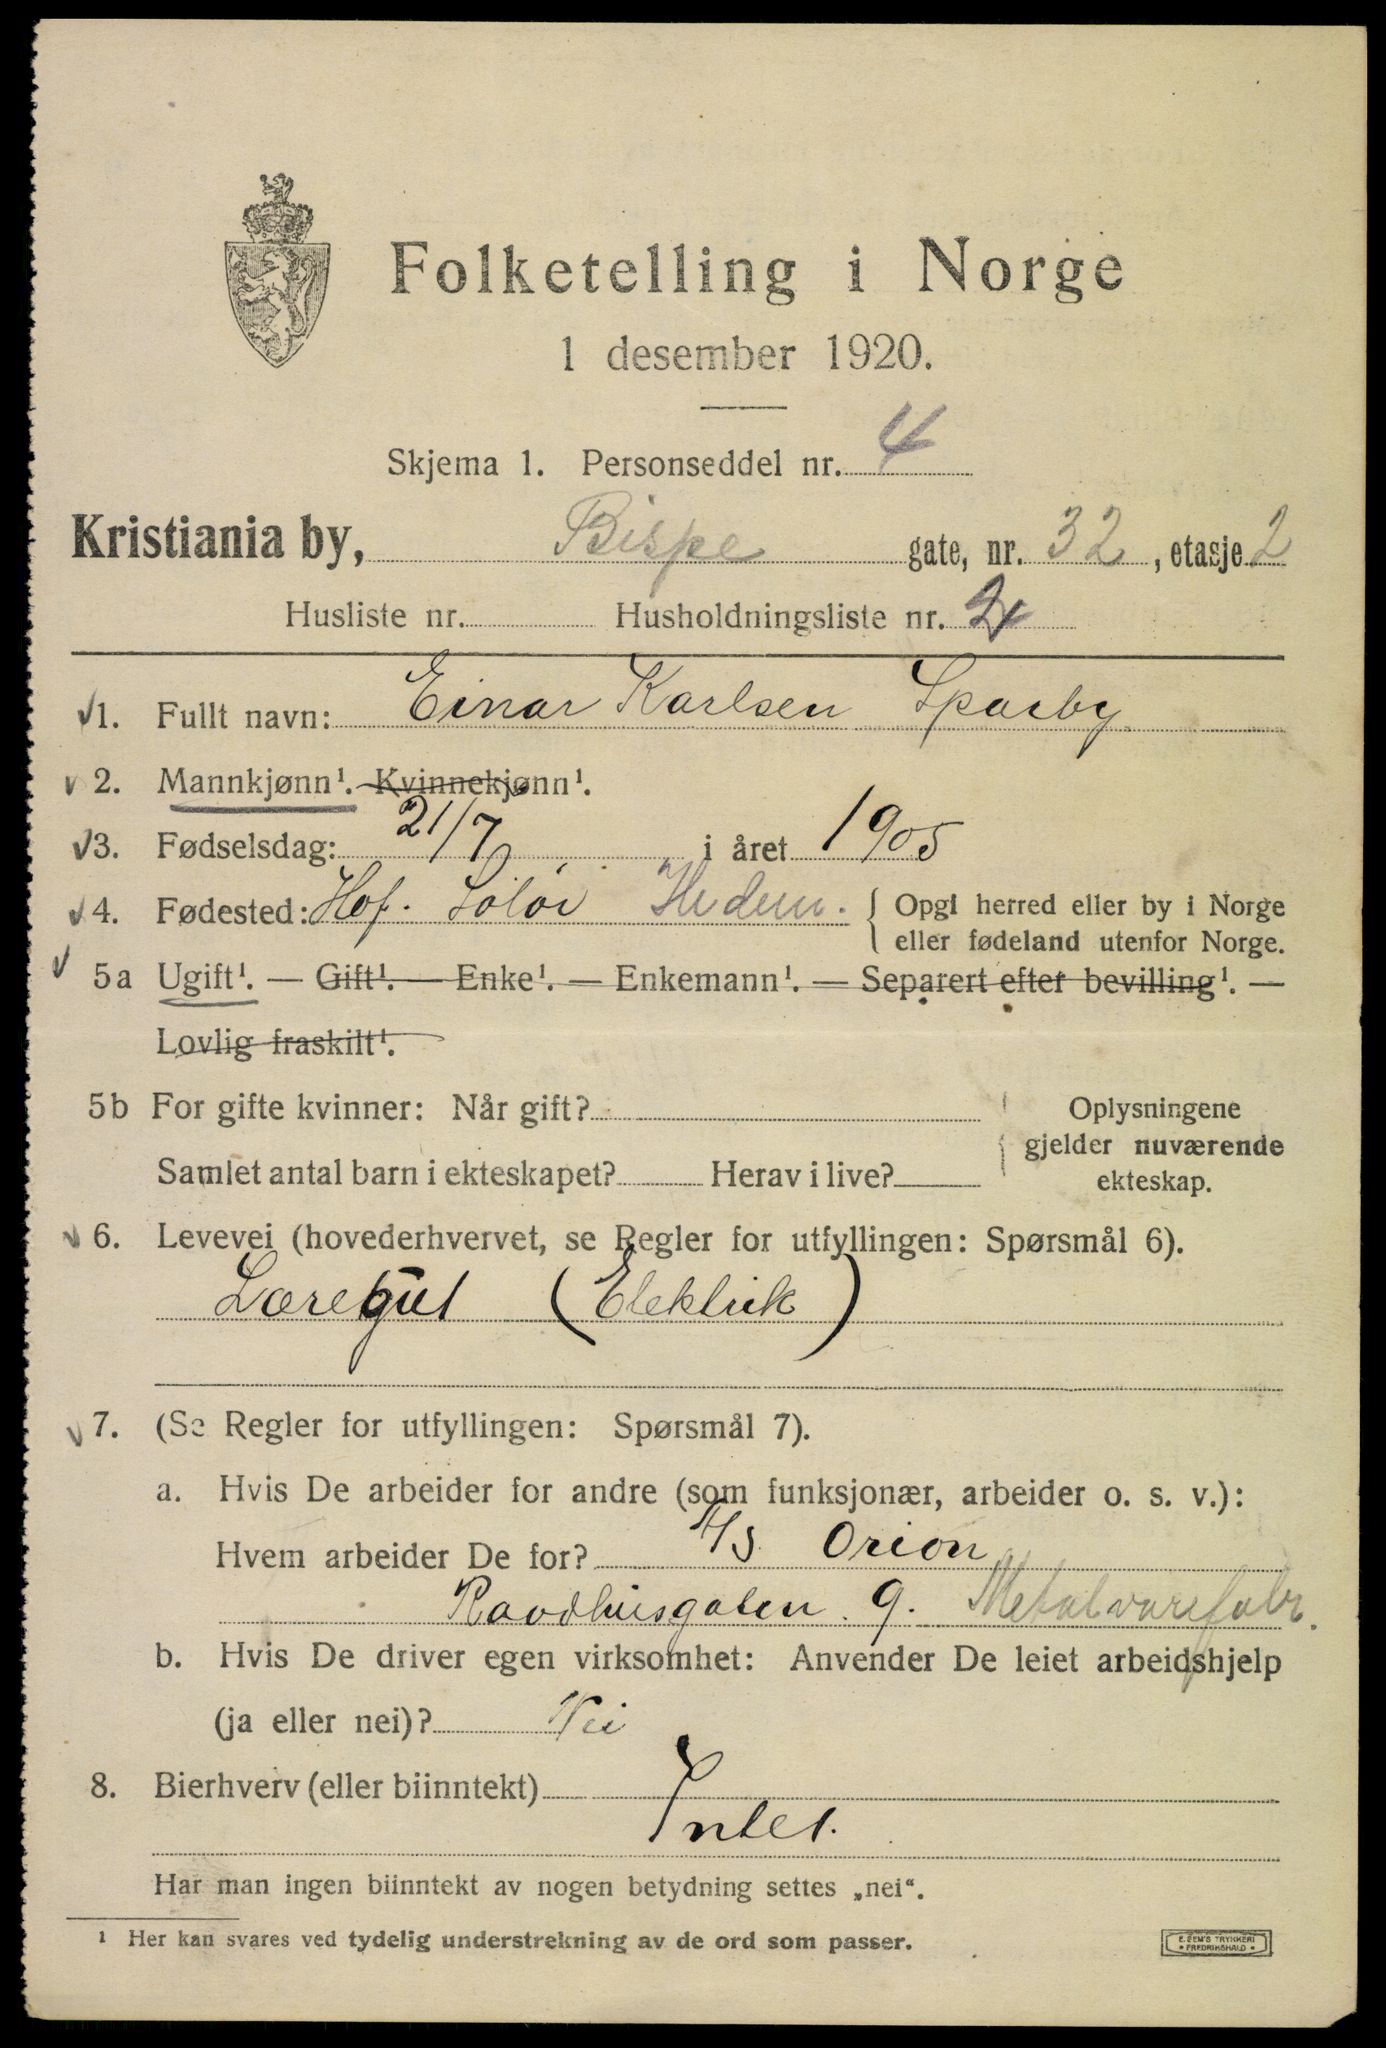 Folketelling i Norge
1 desember 1920.
Skjema 1. Personseddel nr. 4
Kristiania by, Bispe gate, nr. 32, etasje 2
Husliste nr. Husholdningsliste nr.
1. Fullt navn: Einar Karlsen Sparby
2. Mannkjønn¹. Kvinnekjønn¹.
3. Fødselsdag: 21/7 i året 1905
4. Fødested: Hof. Solør Hedm. { Opgi herred eller by i Norge
eller fødeland utenfor Norge.
5a Ugift¹. — Gift¹. — Enke¹. — Enkemann¹. — Separert efter bevilling¹. —
Lovlig fraskilt¹.
5b For gifte kvinner: Når gift? Oplysningene
gjelder nuværende
Samlet antal barn i ekteskapet? Herav i live? ekteskap.
6. Levevei (hovederhvervet, se Regler for utfyllingen: Spørsmål 6).
Læregut (Elektrik)
7. (Se Regler for utfyllingen: Spørsmål 7).
a. Hvis De arbeider for andre (som funksjonær, arbeider o. s. v.):
Hvem arbeider De for? A/S Orion
Raadhusgaten 9. Metalvarefabr.
b. Hvis De driver egen virksomhet: Anvender De leiet arbeidshjelp
(ja eller nei)? Nei
8. Bierhverv (eller biinntekt)
Intet.
Har man ingen biinntekt av nogen betydning settes „nei“.
¹ Her kan svares ved tydelig understrekning av de ord som passer.
E. SEM'S TRYKKERI
• FREDRIKSHALD •